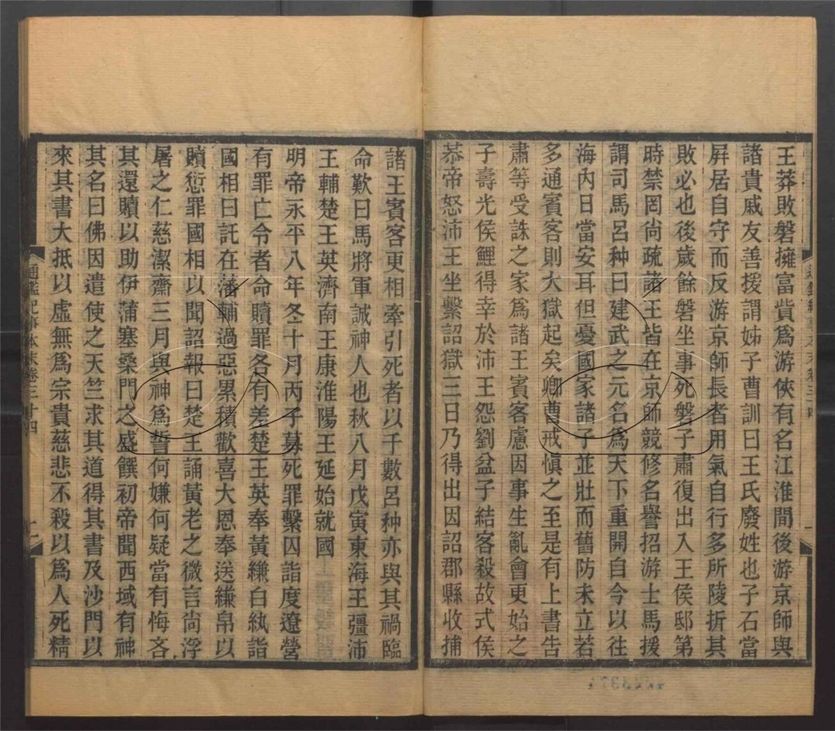 王莽敗磐擁富貲爲游俠有名江淮間後游京師與
諸貴戚友善援謂姊子曹訓曰王氏廢姓也子石當
屛居自守而反游京師長者用氣自行多所陵折其
敗必也後歲餘磐坐事死磐子肅復出入王侯邸第
時禁罔尙疏諸王皆在京師競修名譽招游士馬援
謂司馬呂种曰建武之元名爲天下重開自今以往
海內日當安耳但憂國家諸子並壯而舊防未立若
多通賓客則大獄起矣卿曹戒愼之至是有上書告
肅等受誅之家爲諸王賓客慮因事生亂會更始之
子壽光侯鯉得幸於沛王怨劉盆子結客殺故式侯
恭帝怒沛王坐繫詔獄三日乃得出因詔郡縣收捕
諸王賓客更相牽引死者以千數呂种亦與其禍臨
命歎曰馬將軍誠神人也秋八月戊寅東海王彊沛
王輔楚王英濟南王康淮陽王延始就國
明帝永平八年冬十月丙子募死罪繫囚詣度遼營
有罪亡命者令贖罪各有差楚王英奉黃縑白紈詣
國相曰託在藩輔過惡累積歡喜大恩奉送縑帛以
贖愆罪國相以聞詔報曰楚王誦黃老之微言尙浮
屠之仁慈潔齋三月與神爲誓何嫌何疑當有悔吝
其還贖以助伊蒲塞桑門之盛饌初帝聞西域有神
其名曰佛因遣使之天竺求其道得其書及沙門以
來其書大抵以虛無爲宗貴慈悲不殺以爲人死精
通鑑紀事本末卷三十四